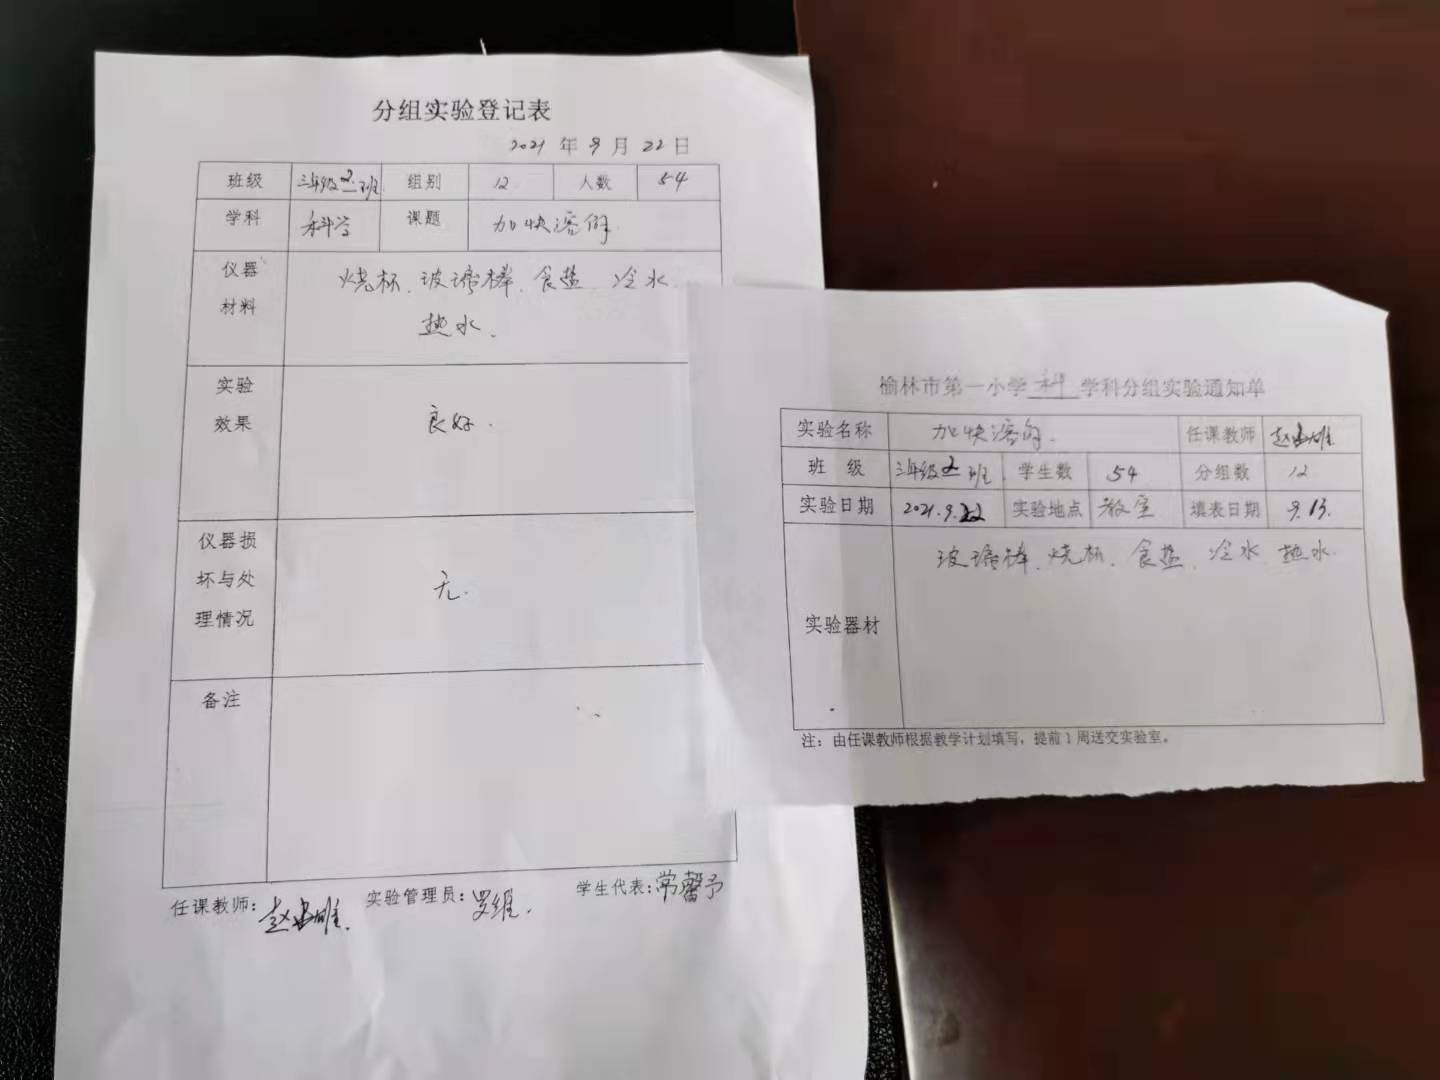 分组实验登记表
2021 年 9 月 22 日
班级 三年级2班 组别 12 人数 54
学科 科学 课题 加快溶解
仪器材料 烧杯、玻璃棒、食盐、冷水、
热水、
实验效果 良好.
仪器损坏与处理情况 无.
备注
任课教师: 实验管理员:罗维. 学生代表:常馨予
榆林市第一小学 科 学科分组实验通知单
实验名称 加快溶解. 任课教师
班 级 三年级2班 学生数 54 分组数 12
实验日期 2021.9.22 实验地点 教室 填表日期 9.13.
实验器材 玻璃棒、烧杯、食盐、冷水、热水.
注:由任课教师根据教学计划填写,提前1周送交实验室。